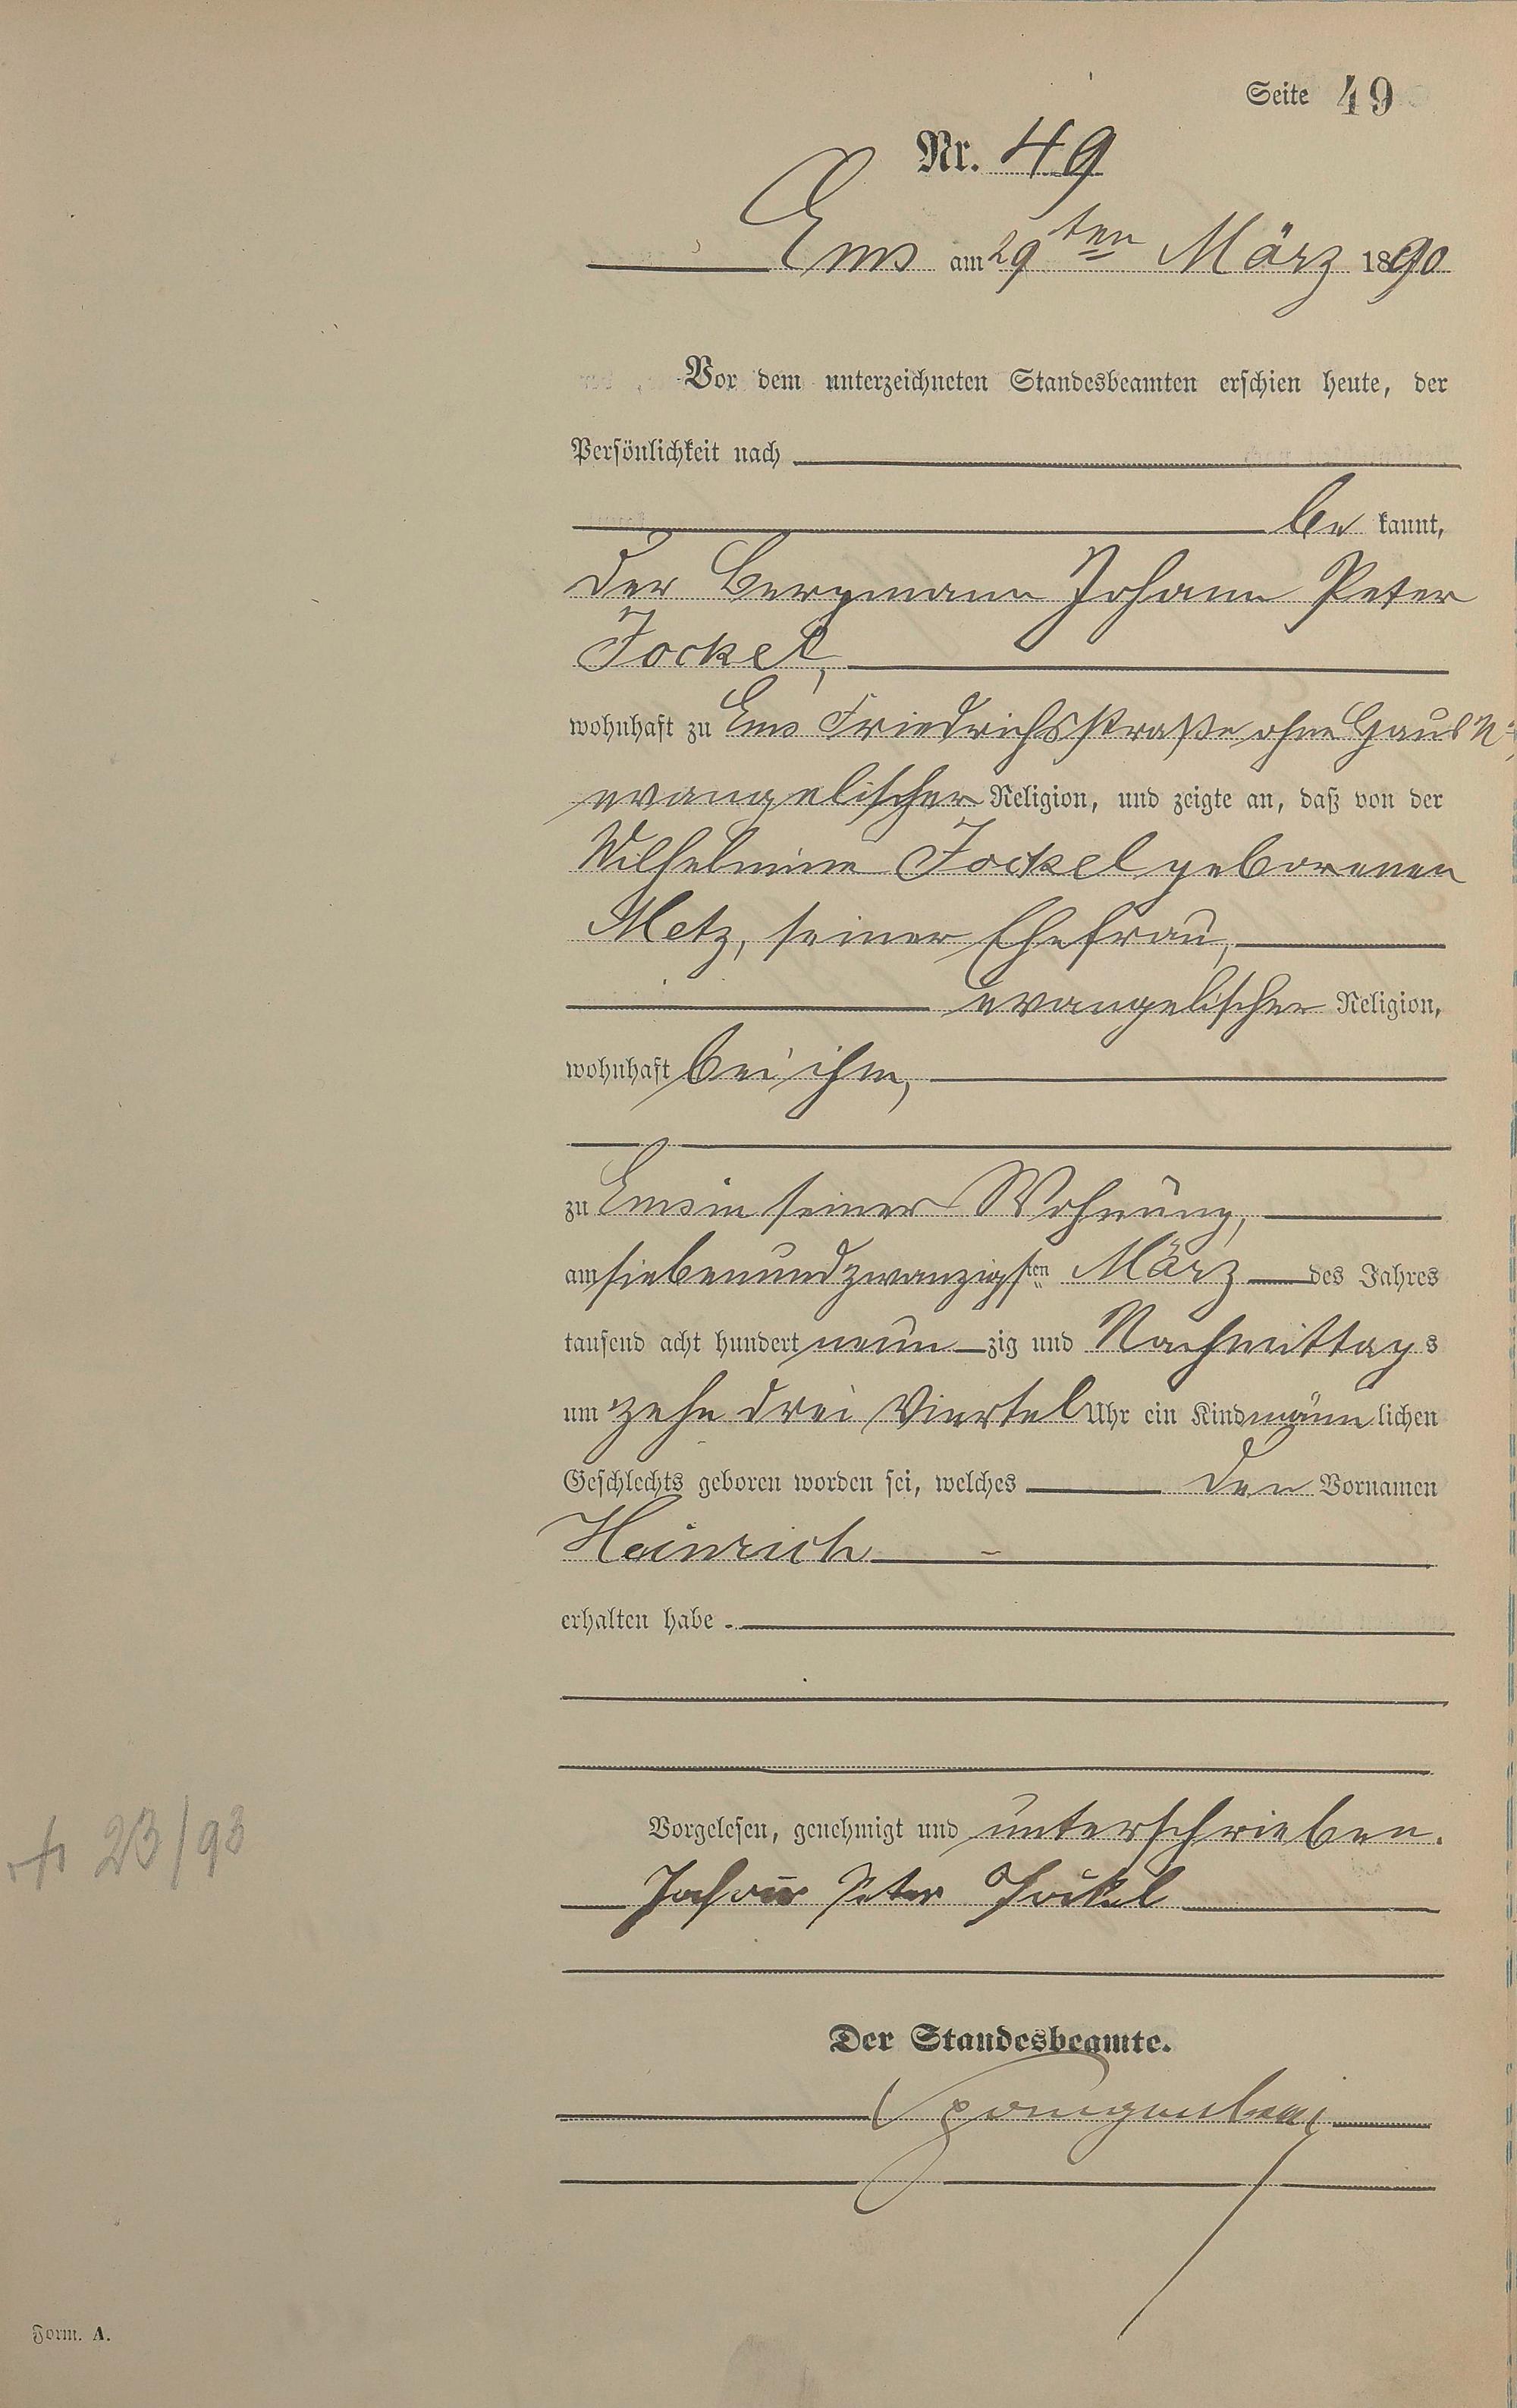 Seite 49
Nr. 49
Ems am 29ten März 1890
Vor dem unterzeichneten Standesbeamten erschien heute, der
Persönlichkeit nach
be kannt,
der Bergmann Johann Peter
Jockel,
wohnhaft zu Ems Friedrichsstraße ohne Haus No,
evangelischer Religion, und zeigte an, daß von der
Wilhelmine Jockel geborenen
Metz, seiner Ehefrau,
evangelischer Religion,
wohnhaft bei ihm,
zu Ems in seiner Wohnung,
am siebenundzwanzigsten März des Jahres
tausend acht hundert neun zig und Nachmittags
um zehn drei Viertel Uhr ein Kind männ lichen
Geschlechts geboren worden sei, welches den Vornamen
Heinrich
erhalten habe.
Vorgelesen, genehmigt und unterschrieben.
Johann Peter Jockel
Der Standesbeamte.
23/93
Form. A.